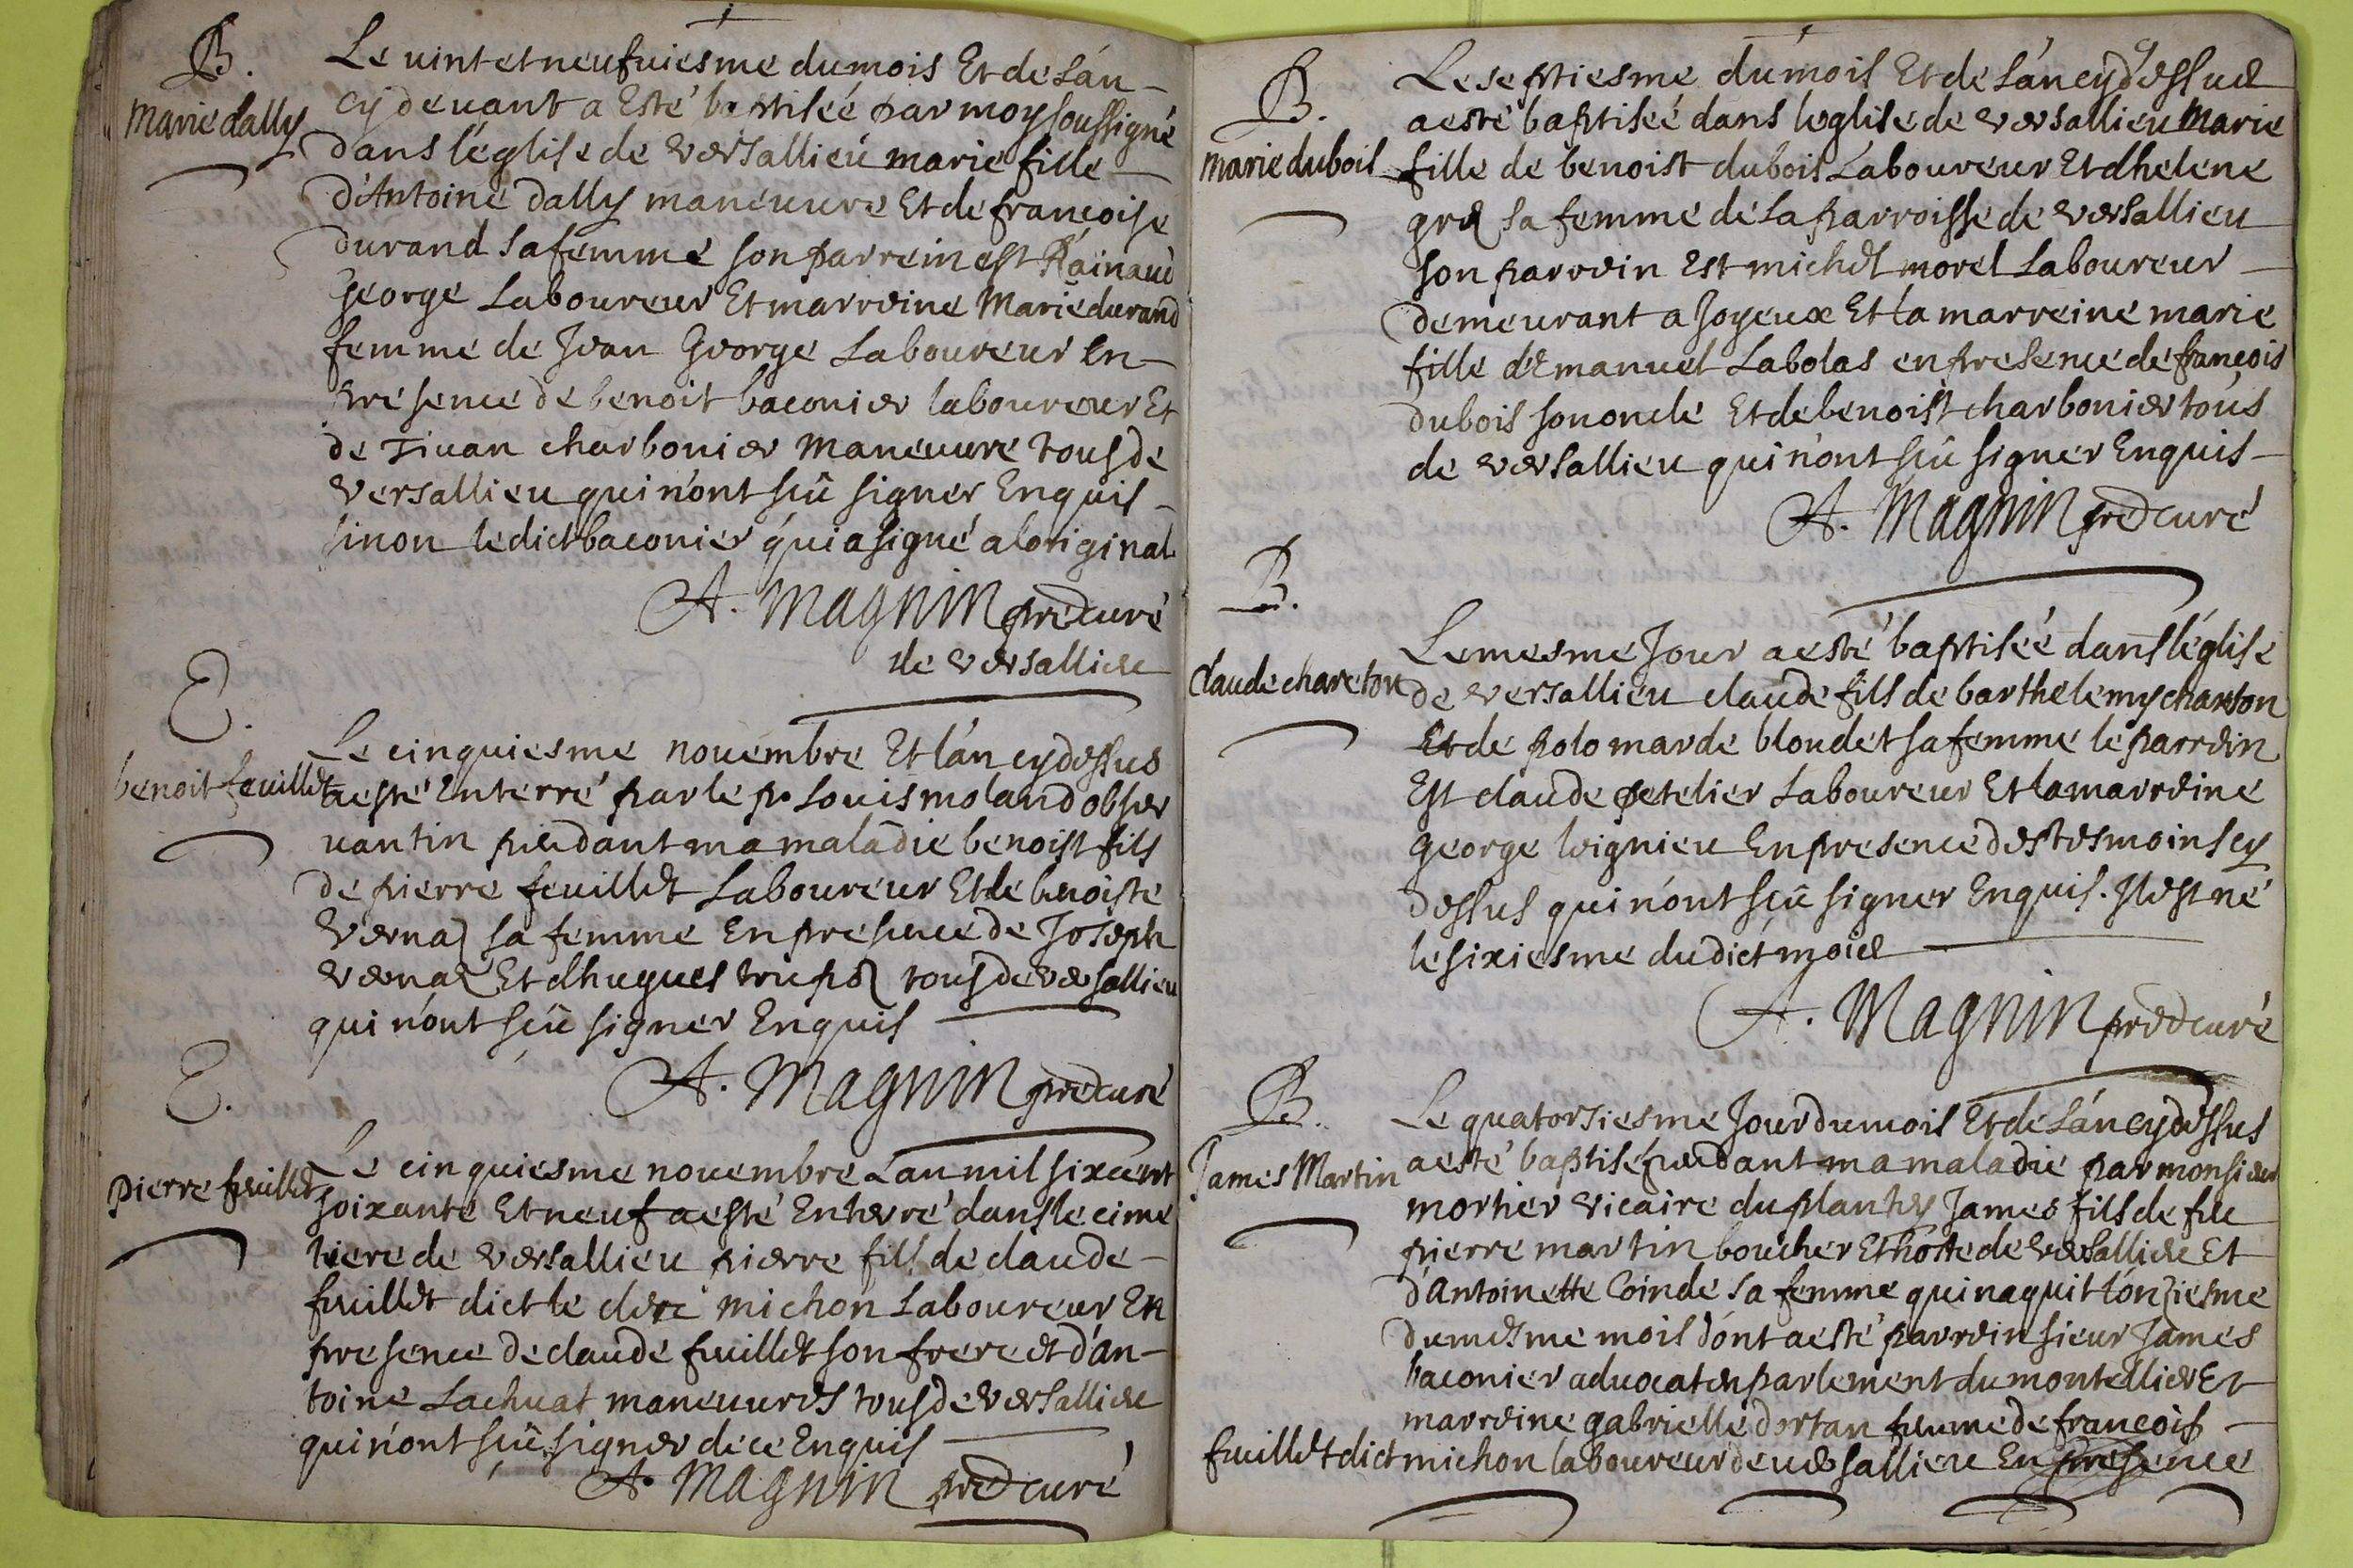 B.
Marie dally
Le uint et neufuiesme du mois Et de L'an
cy deuant a Esté baptiseé par moy soussigné
dans l'église de versallieu marie fille
d'Antoine dally maneuure Et de françoise
durand sa femme son parrein est Rainaud
George Laboureur Et marreine Marie durand
femme de Jean George Laboureur En
presence de benoit baconier laboureur Et
de Fiuan charbonier Maneuure tous de
versallieu qui n'ont sçû signer Enquis
sinon ledict baconier qui a signé a loriginal.
A. Magnin pred curé
de versallieu
E.
benoit feuillet
Le cinquiesme nouembre Et l'an cy dessus
a esté Enterré par le p. Louis moland obser
uantin pendant ma maladie benoist fils
de pierre feuillet Laboureur Et de benoiste
vernaz sa femme En presence de Joseph
vernaz Et dhugues trupoz tous de versallieu
qui n'ont sçû signer Enquis
A. Magnin pred curé
E.
pierre feuillet
Le cinquiesme nouembre L'an mil six cent
soixante Et neuf a esté Enterré dans le cime
tiere de versallieu pierre fils de claude
feuillet dict le clerc michon Laboureur En
presence de claude feuillet son frere et d'an-
toine Lachuat maneuures tous de versallieu
qui n'ont sçû signer de ce Enquis
A. Magnin pred curé
B.
marie dubois
Le septiesme du mois Et de L'an cy dessus
a esté baptiseé dans leglise de versallieu Marie
fille de benoist dubois Laboureur Et dhelene
grez sa femme de La parroisse de versallieu
son parrein Est michel morel Laboureur
demeurant a Joyeux Et la marreine marie
fille d'Emanuel Labolas en presence de françois
dubois son oncle Et de benoist charbonier tous
de versallieu qui n'ont sçû signer Enquis
A. Magnin pred curé
B.
Claude chareton
Le mesme Jour a esté baptiseé dans l'église
de versallieu claude fils de barthelemy charton
Et de polomarde bloudet sa femme le parrein
Est claude petelier Laboureur Et la marreine
George loignieu En presence des tesmoins cy
dessus qui n'ont sçû signer Enquis. Il est né
le sixiesme dudict mois
A. Magnin pred curé
B.
James Martin
Le quatorsiesme Jour du mois Et de L'an cy dessus
a esté baptisé pendant ma maladie par monsieur
mortier vicaire du plantey James fils de feu
pierre martin boucher Et hoste de versallieu Et
d'Antoinette Coinde sa femme qui naquit l'onziesme
du mesme mois dont a esté parrein sieur James
baconier aduocat en parlement du montellier Et
marreine gabrielle dortan femme de françois
feuillet dict michon laboureur de versallieu En presence